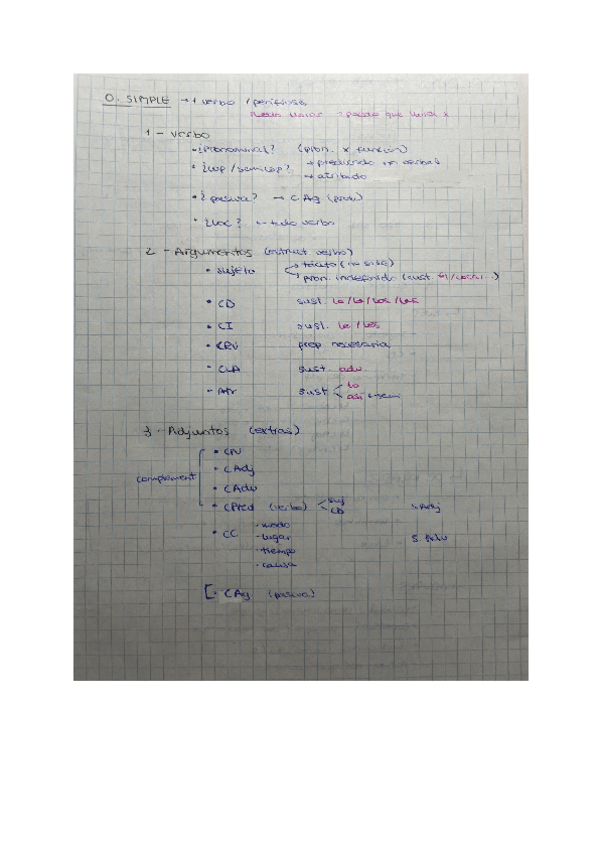 O. SIMPLE → 1 verbo / perífrasis
1 - Verbo
· ¿pronominal? (pron. x función)
· ¿cop / semicop? → predicado no verbal
→ atributo
· ¿pasiva? → C Ag (prob)
· ¿loc? ← todo verbo
2 - Argumentos (estruct verbo)
· sujeto tácito (no sale)
pron. indefinido (sust.
· CD sust. lo/la/los/las
· CI sust. le/les
· CRV prep necesaria
· CLA sust adv.
· Atr sust lo
así
3 - Adjuntos (extras)
complement
· CN
· CAdj
· CAdv
· CPred (verbo) suj
CD
· CC · modo
· lugar
· tiempo
· causa
[· CAg (pasiva)